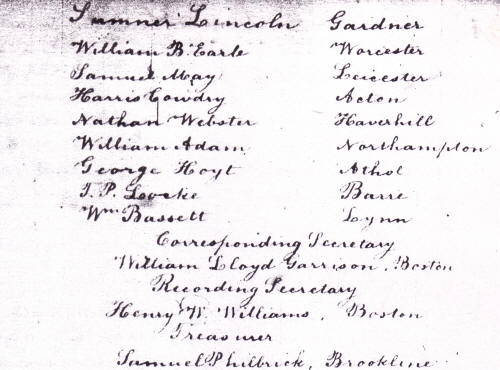 Sumner Lincoln Gardner
William B. Earle Worcester
Samuel May Leicester
Harris Cowdry Acton
Nathan Webster Haverhill
William Adam Northampton
George Hoyt Athol
J. P. Locke Barre
Wm Bassett Lynn
Corresponding Secretary
William Lloyd Garrison, Boston
Recording Secretary
Henry W. Williams, Boston
Treasurer
Samuel Philbrick, Brookline